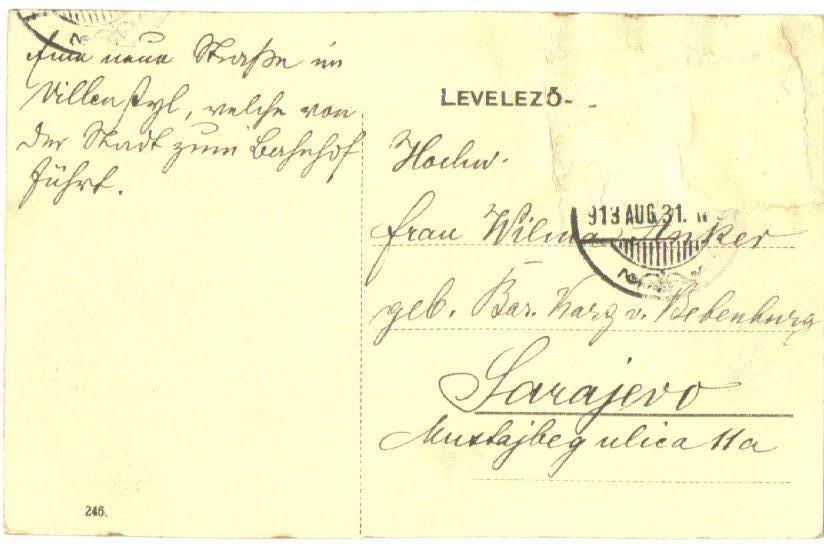 Eine neue Straße im
Villenstyl, welche von
der Stadt zum Bahnhof
führt.
LEVELEZŐ-
Hochw.
913 AUG. 31.
Frau Wilma Anker
geb. Bar. Karg v. Bebenburg
Sarajevo
Mustajbeg ulica 11a
246.